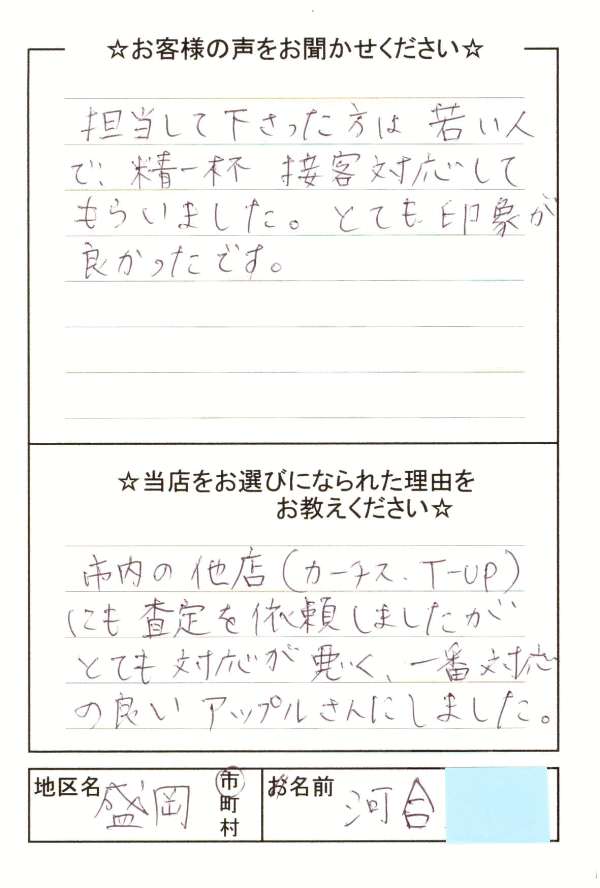 ☆お客様の声をお聞かせください☆
担当して下さった方は 若い人
で、精一杯 接客対応して
もらいました。とても印象が
良かったです。
☆当店をお選びになられた理由を
お教えください☆
市内の他店(カーチス、T-UP)
にも査定を依頼しましたが
とても対応が悪く、一番対応
の良いアップルさんにしました。
地区名 盛岡 市町村 お名前 河合